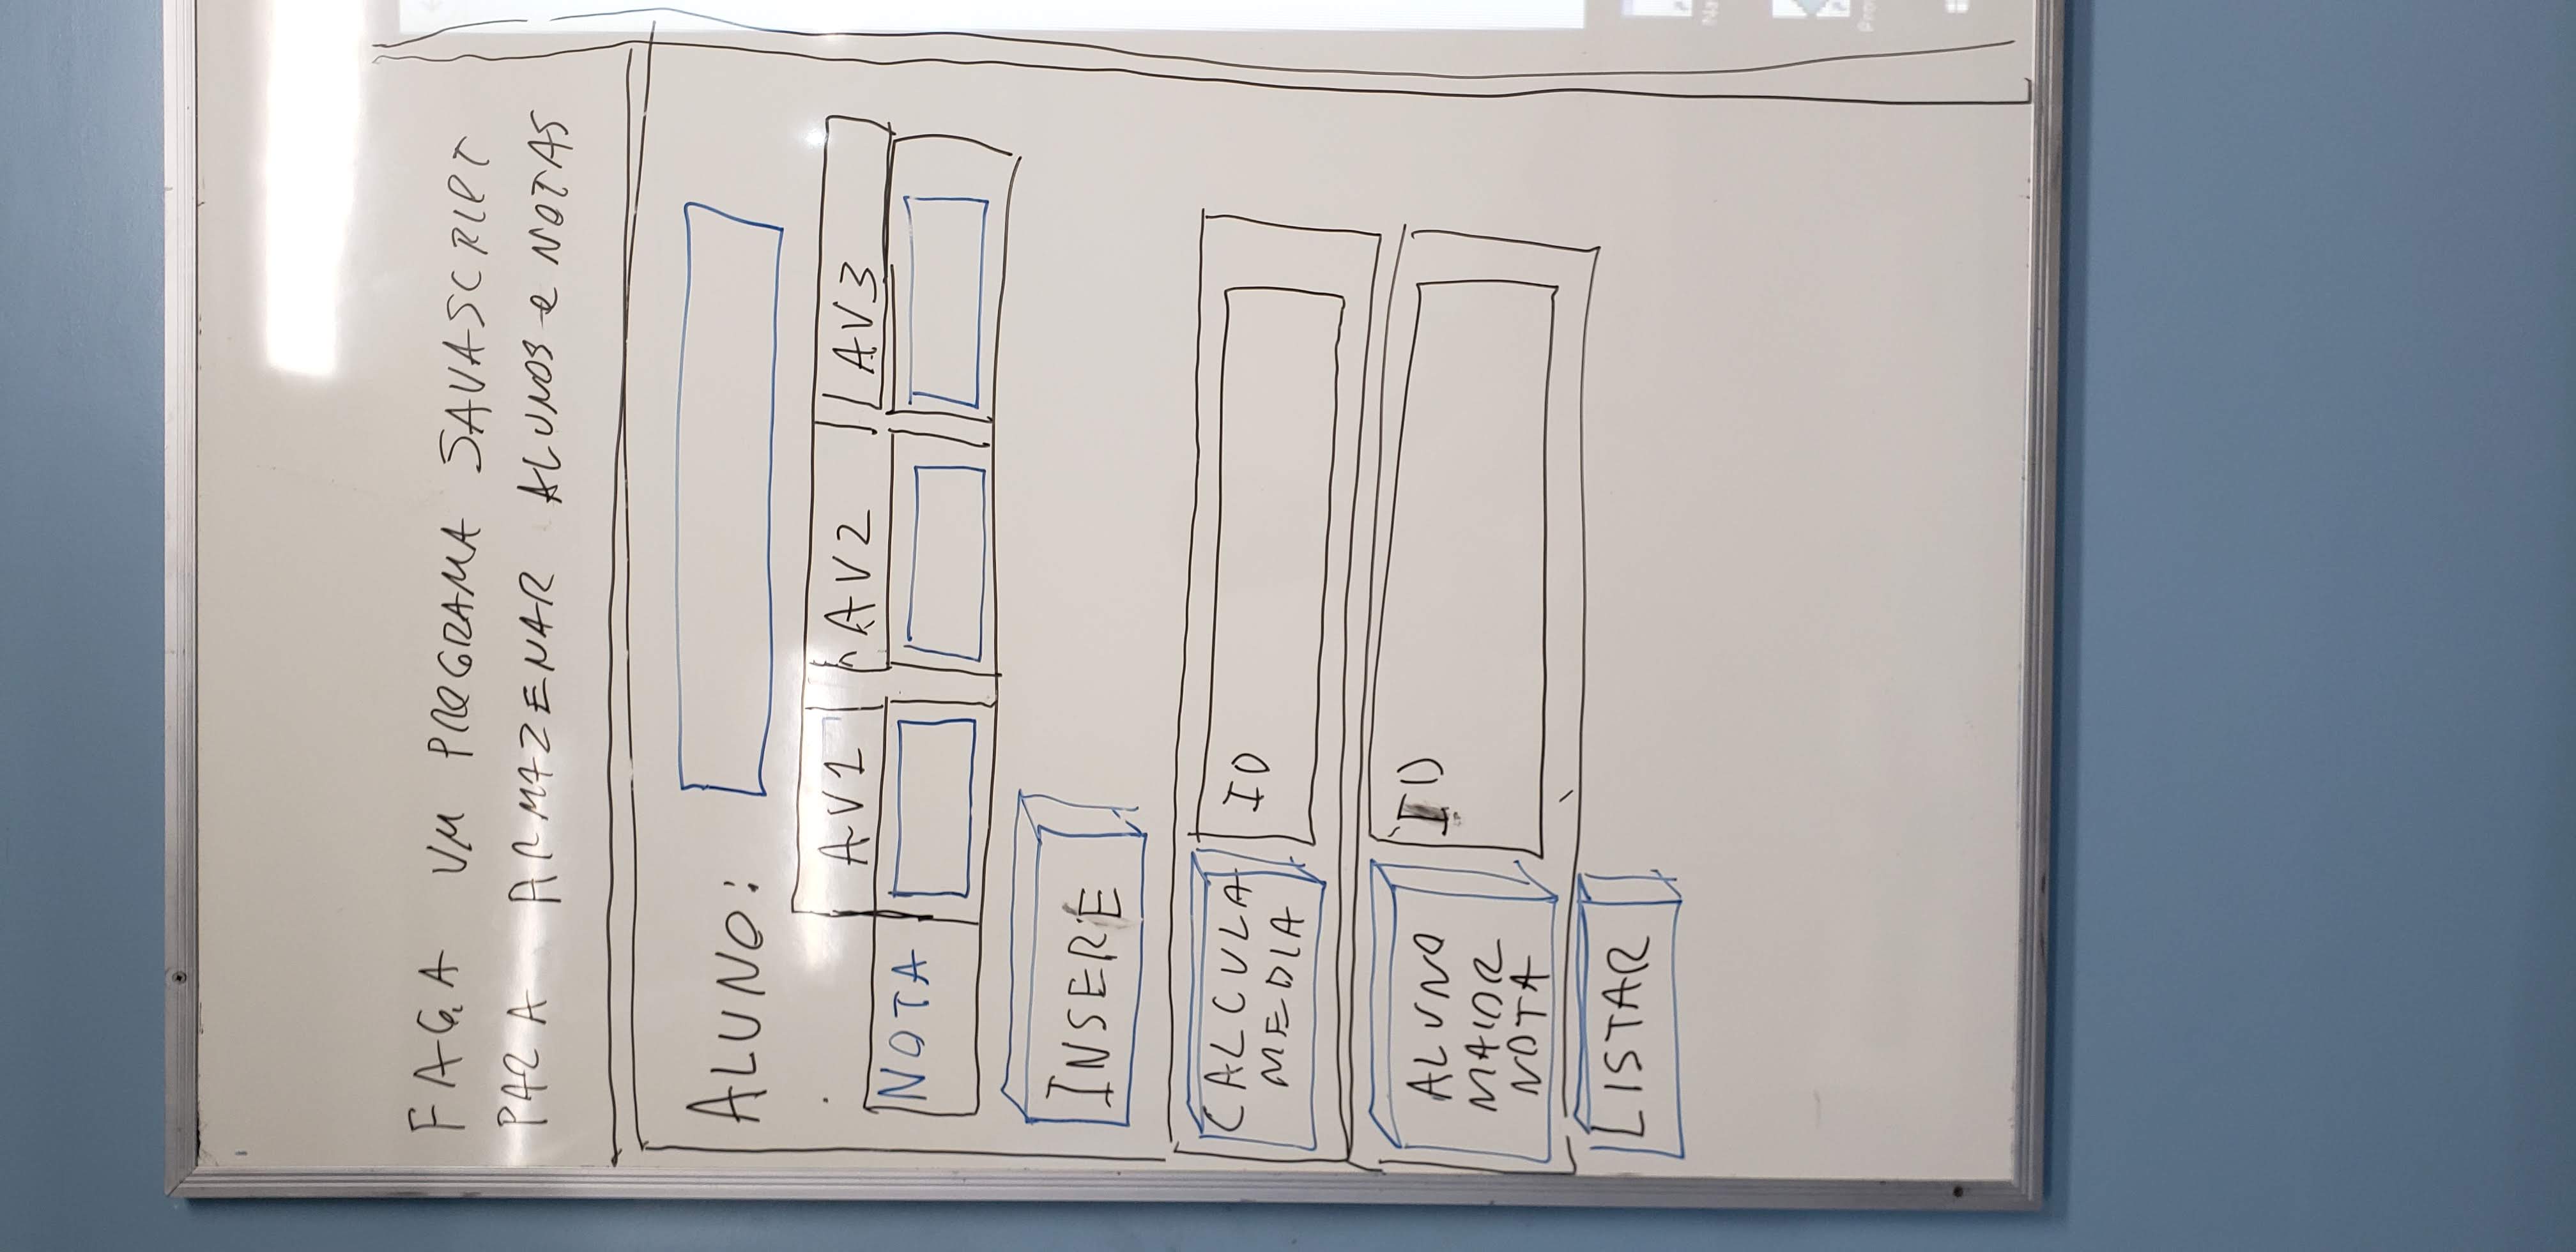 FAÇA UM PROGRAMA JAVASCRIPT
PARA ARMAZENAR ALUNOS e NOTAS
ALUNO:
AV1 AV2 AV3
NOTA
INSERE
CALCULA
MEDIA
ID
ALUNO
MAIOR
NOTA
ID
LISTAR